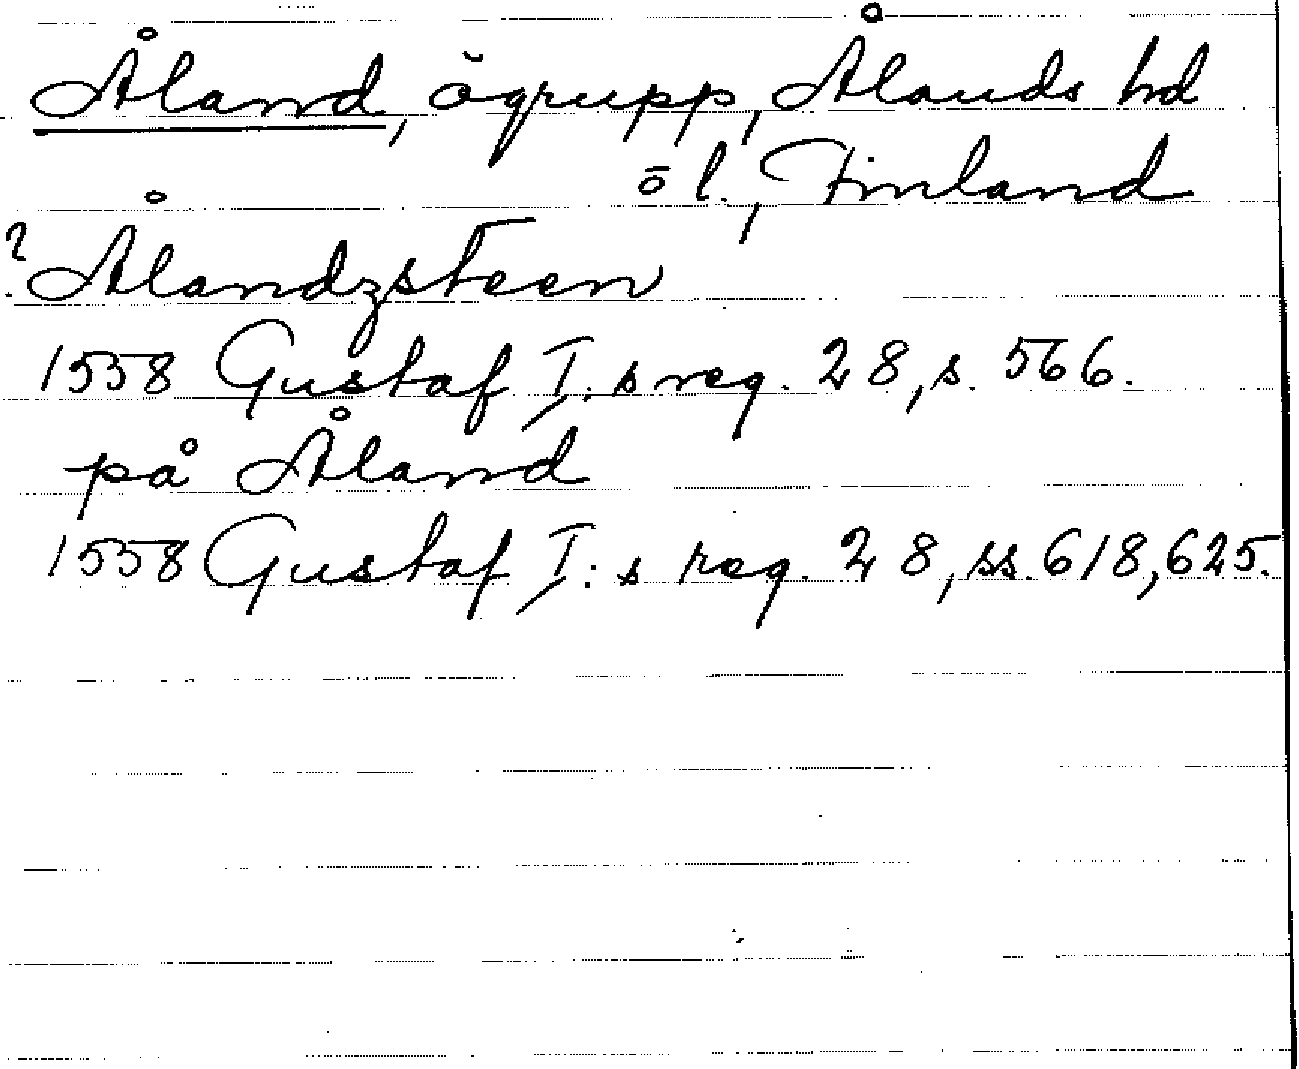 Åland, ögrupp, Ålands hd
ö l., Finland
? Ålandzsteen
1558 Gustaf I:s reg. 28, s. 566.
på Åland
1558 Gustaf I:s reg. 28, ss. 618, 625.